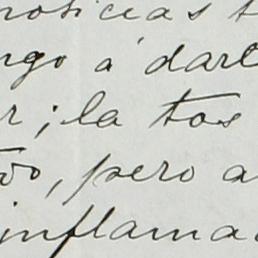 noticias t
ngo á darl
r; la tos
do, pero a
inflama